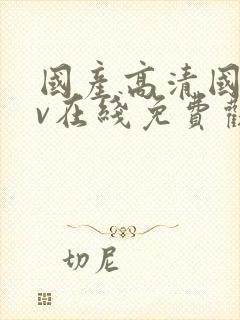 國產高清國
v在綫免費觀
切尼